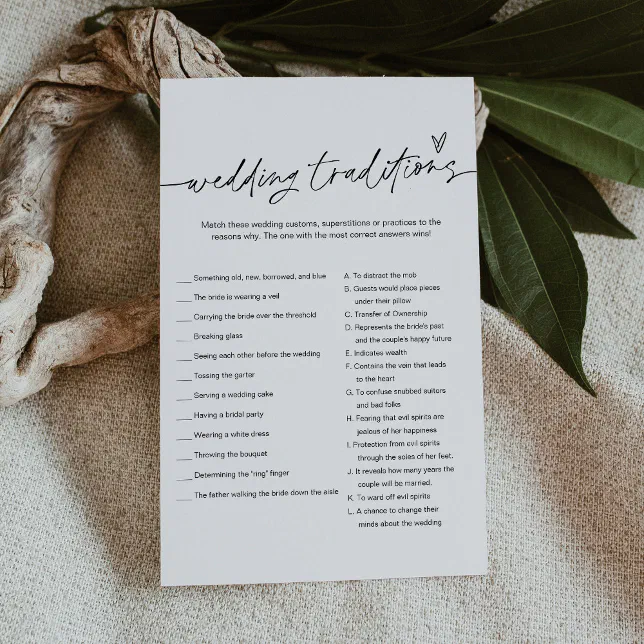 wedding traditions
Match these wedding customs, superstitions or practices to the
reasons why. The one with the most correct answers wins!
___ Something old, new, borrowed, and blue
___ The bride is wearing a veil
___ Carrying the bride over the threshold
___ Breaking glass
___ Seeing each other before the wedding
___ Tossing the garter
___ Serving a wedding cake
___ Having a bridal party
___ Wearing a white dress
___ Throwing the bouquet
___ Determining the "ring" finger
___ The father walking the bride down the aisle
A. To distract the mob
B. Guests would place pieces
under their pillow
C. Transfer of Ownership
D. Represents the bride's past
and the couple's happy future
E. Indicates wealth
F. Contains the vein that leads
to the heart
G. To confuse snubbed suitors
and bad folks
H. Fearing that evil spirits are
jealous of her happiness
I. Protection from evil spirits
through the soles of her feet.
J. It reveals how many years the
couple will be married.
K. To ward off evil spirits
L. A chance to change their
minds about the wedding